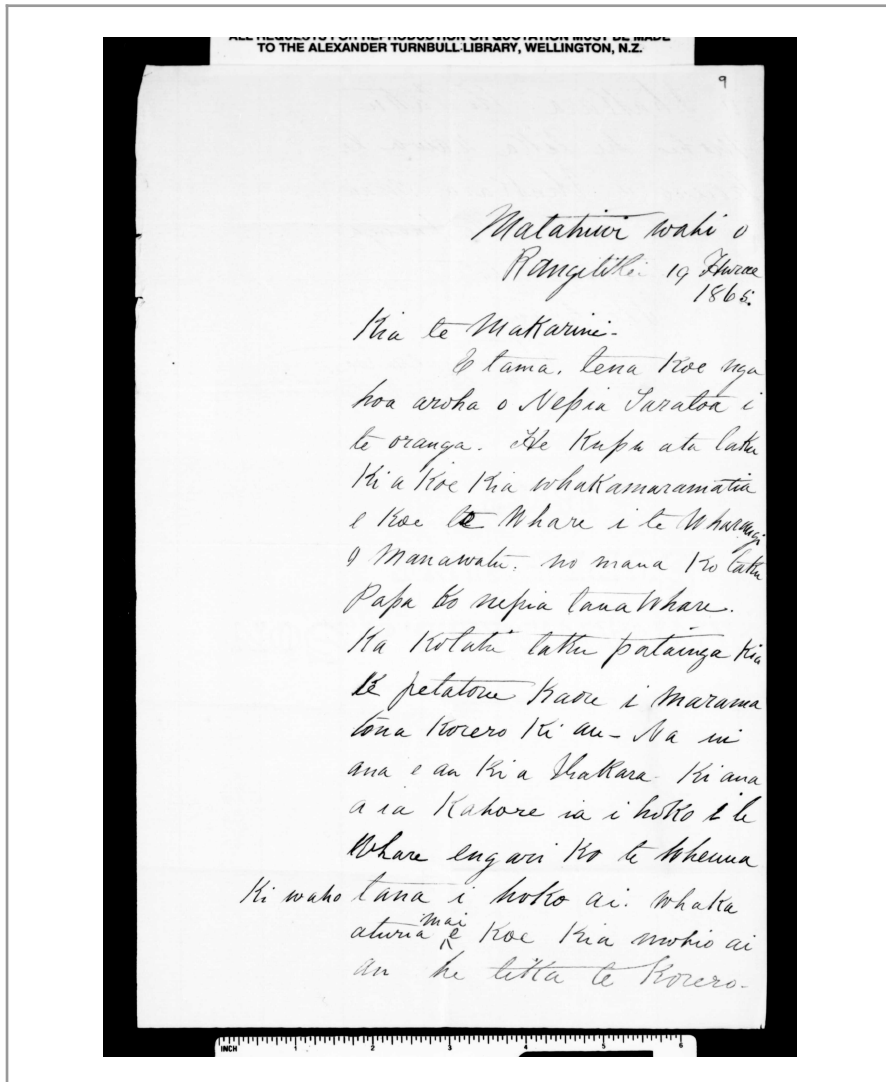 ALL REQUESTS FOR REPRODUCTION OR QUOTATION MUST BE MADE
TO THE ALEXANDER TURNBULL LIBRARY, WELLINGTON, N.Z.
9
Matahiwi wahi o
Rangitikei 19 Hurae
1865.
Kia te Makarini-
E tama, tena Koe nga
hoa aroha o Nepia Taratoa i
te oranga. He Kupu ata taku
Ki a Koe Kia whakamaramatia
e Koe te Whare i te Wharangi
o Manawatu. no mana Ko taku
Papa Ko nepia tana Whare.
Ka Kotahi taku patainga Kia
te petatone Kaore i marama
tona Korero Ki au- Na ui
ana e au Ki a Ihakara- Ki ana
a ia Kahore ia i hoko i te
Whare engari Ko te Whenua
Ki waho tana i hoko ai. whaka
aturia mai e Koe Kia mohio ai
au he tika te Korero-
INCH 1 2 3 4 5 6